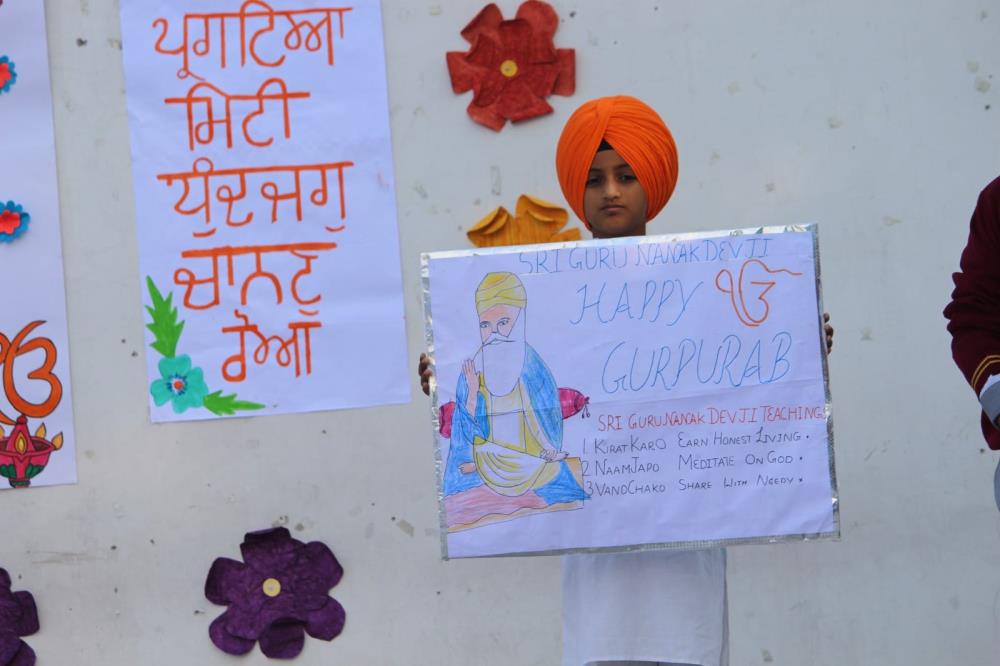 ਪ੍ਰਗਟਿਆ
ਮਿਟੀ
ਧੁੰਦਜਗੁ
ਚਾਨਣੁ
ਹੋਆ
SRI GURU NANAK DEV JI
HAPPY ੴ
GURPURAB
SRI GURU NANAK DEV JI TEACHINGS
1. KIRAT KARO EARN HONEST LIVING.
2 NAAM JAPO MEDITATE ON GOD.
3 VAND CHAKO SHARE WITH NEEDY
ੴ